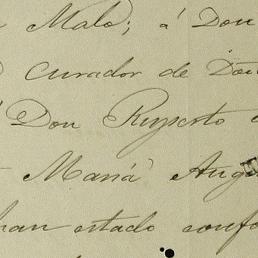 Malo; á Don
Curador de Don
Don Ruperto
María Aug
han estado confo